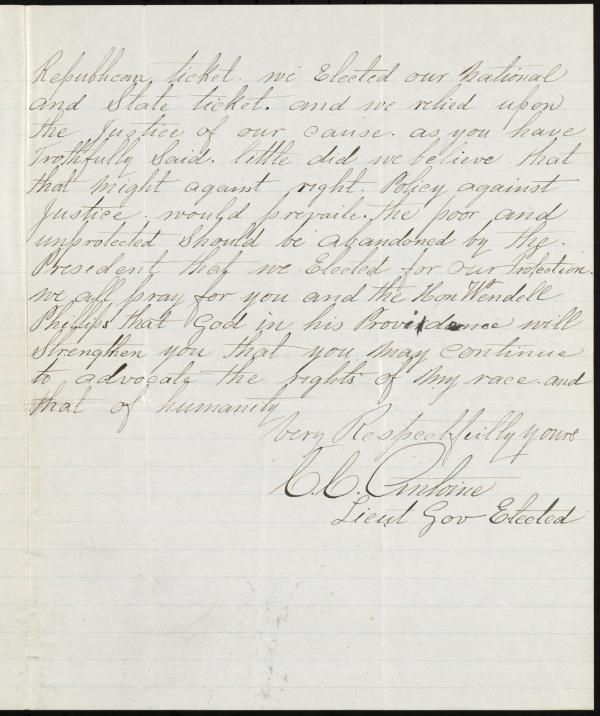 Republican ticket. we Elected our National
and State ticket. and we relied upon
the Justice of our cause. as you have
Trothfully Said. little did we believe that
that might against right. Policy against
Justice. would prevaile. the poor and
unprotected Should be abandoned by the.
President that we Elected for our Protection.
we all pray for you and the Hon Wm Wendell
Phillips that God in his Providence will
Strengthen you that you may continue
to advocate the rights of my race. and
that of humanity
Very Respectfully yours
C.C. Antoine
Lieut Gov Elected